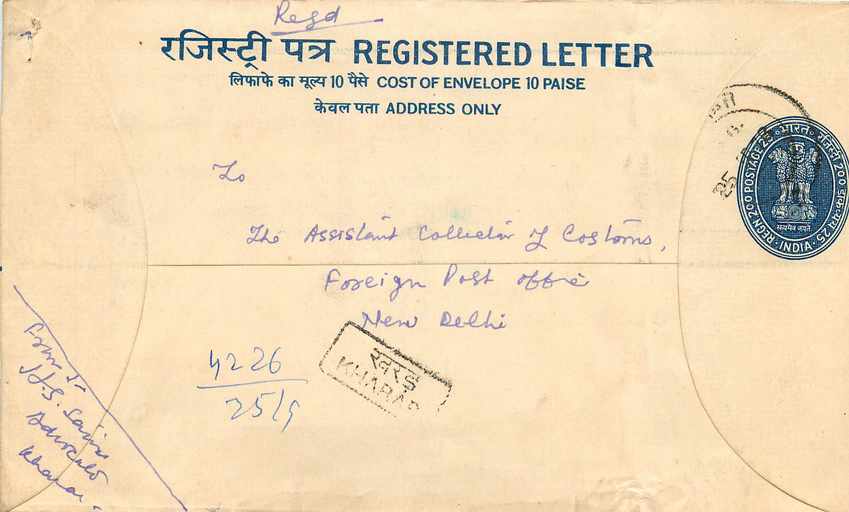 Regd
रजिस्ट्री पत्र REGISTERED LETTER
लिफाफे का मूल्य 10 पैसे COST OF ENVELOPE 10 PAISE
केवल पता ADDRESS ONLY
REGN. 200 POSTAGE 25 भारत रजिस्ट्री 200 डाक व्यय 25
सत्यमेव जयते
INDIA
25
To
The Assistant Collector of Customs,
Foreign Post Office
New Delhi
4226
25/9
खरड़
KHARAR
From :-
H.S. Saini
Advocate
Kharar